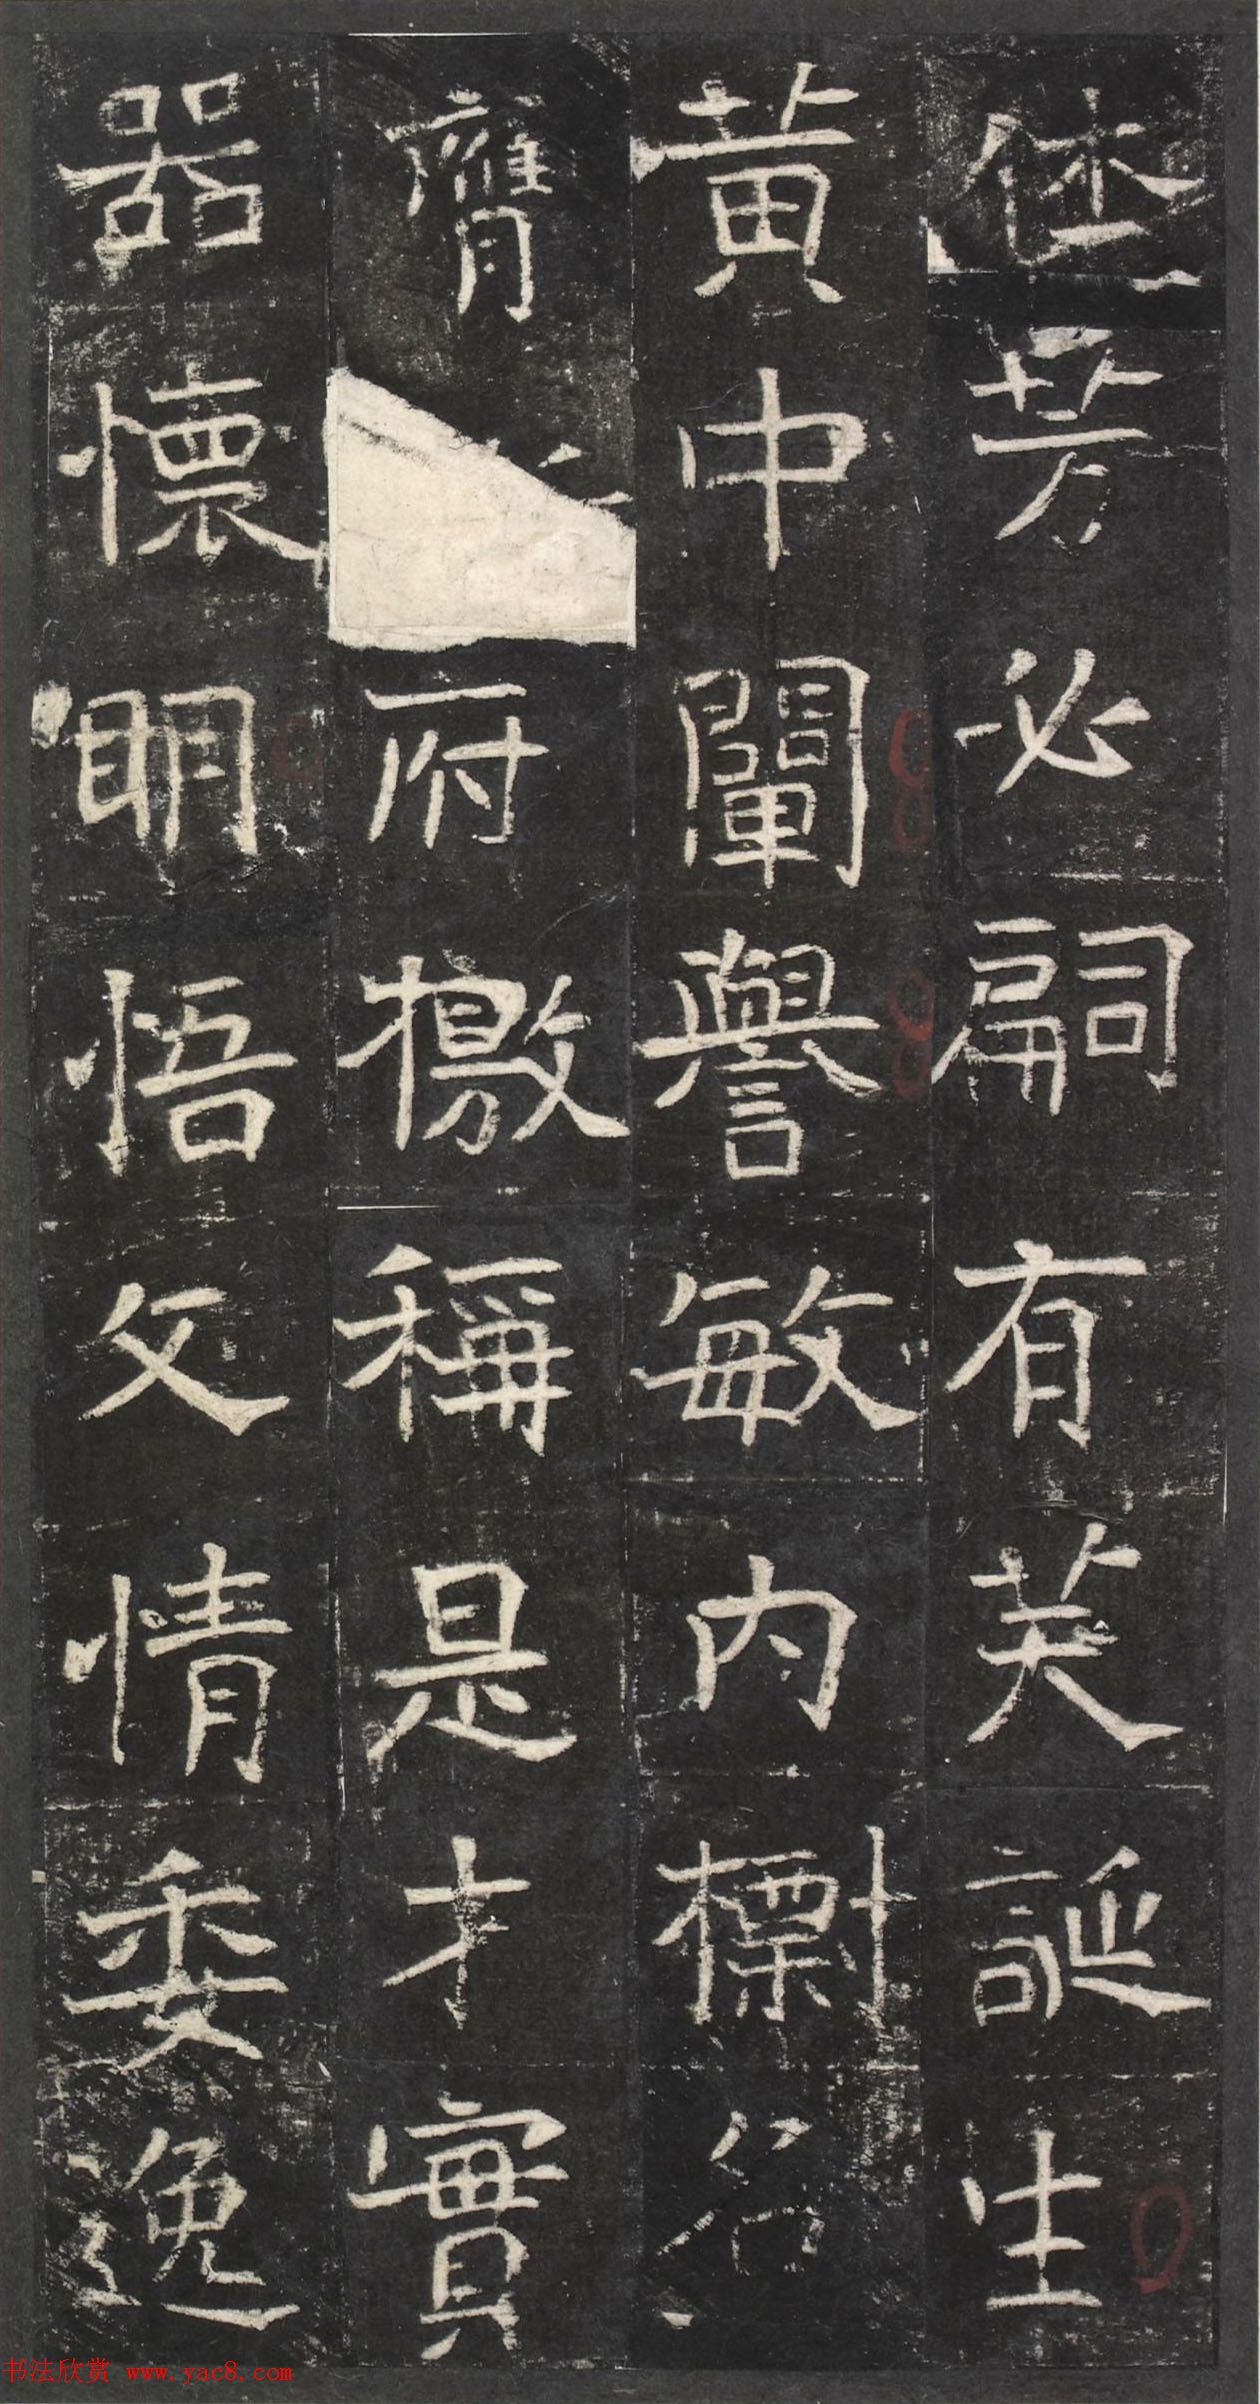 芳必嗣有美誕生
黄中闡譽敏内標
膺府檄稱是才實
器懷明悟文情委逸
书法欣赏 www.yac8.com